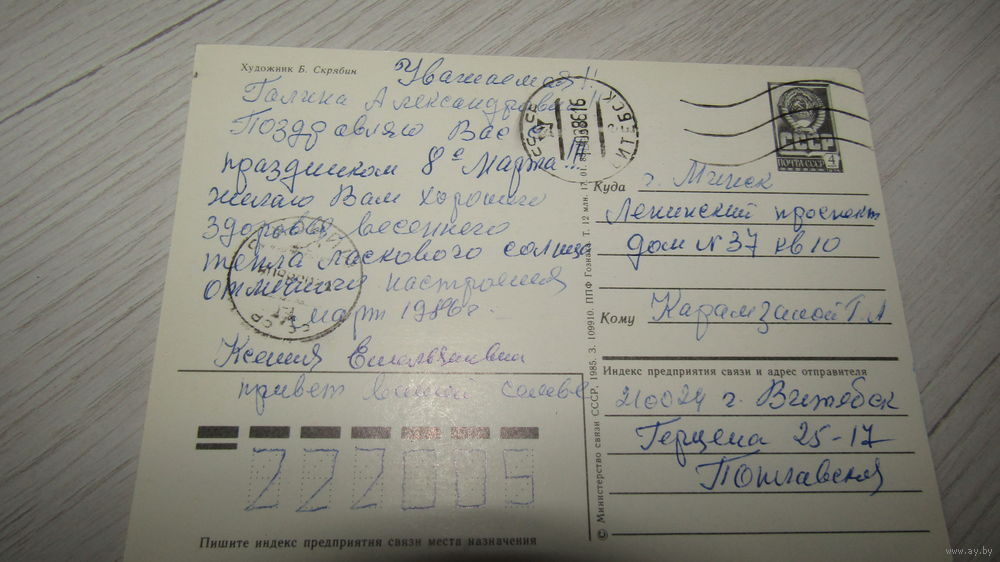 Художник Б. Скрябин
Уважаемая!!
Галина Александровна!!
Поздравляю Вас с
праздником 8е Марта!!!
желаю Вам хорошего
здоровья весеннего
тепла ласкового солнца
отличного настроения
март 1986г.
Ксения
привет вашей семье
222005
Пишите индекс предприятия связи места назначения
СССР
ВИТЕБСК
СССР
ПОЧТА СССР
4
Куда г. Минск
Ленинский проспект
дом N 37 кв 10
Кому Г. А
Индекс предприятия связи и адрес отправителя
210024 г. Витебск
Герцена 25-17
© Министерство связи СССР, 1985. З. 109910. ППФ Гознака Т. 12 млн.
www.ay.by